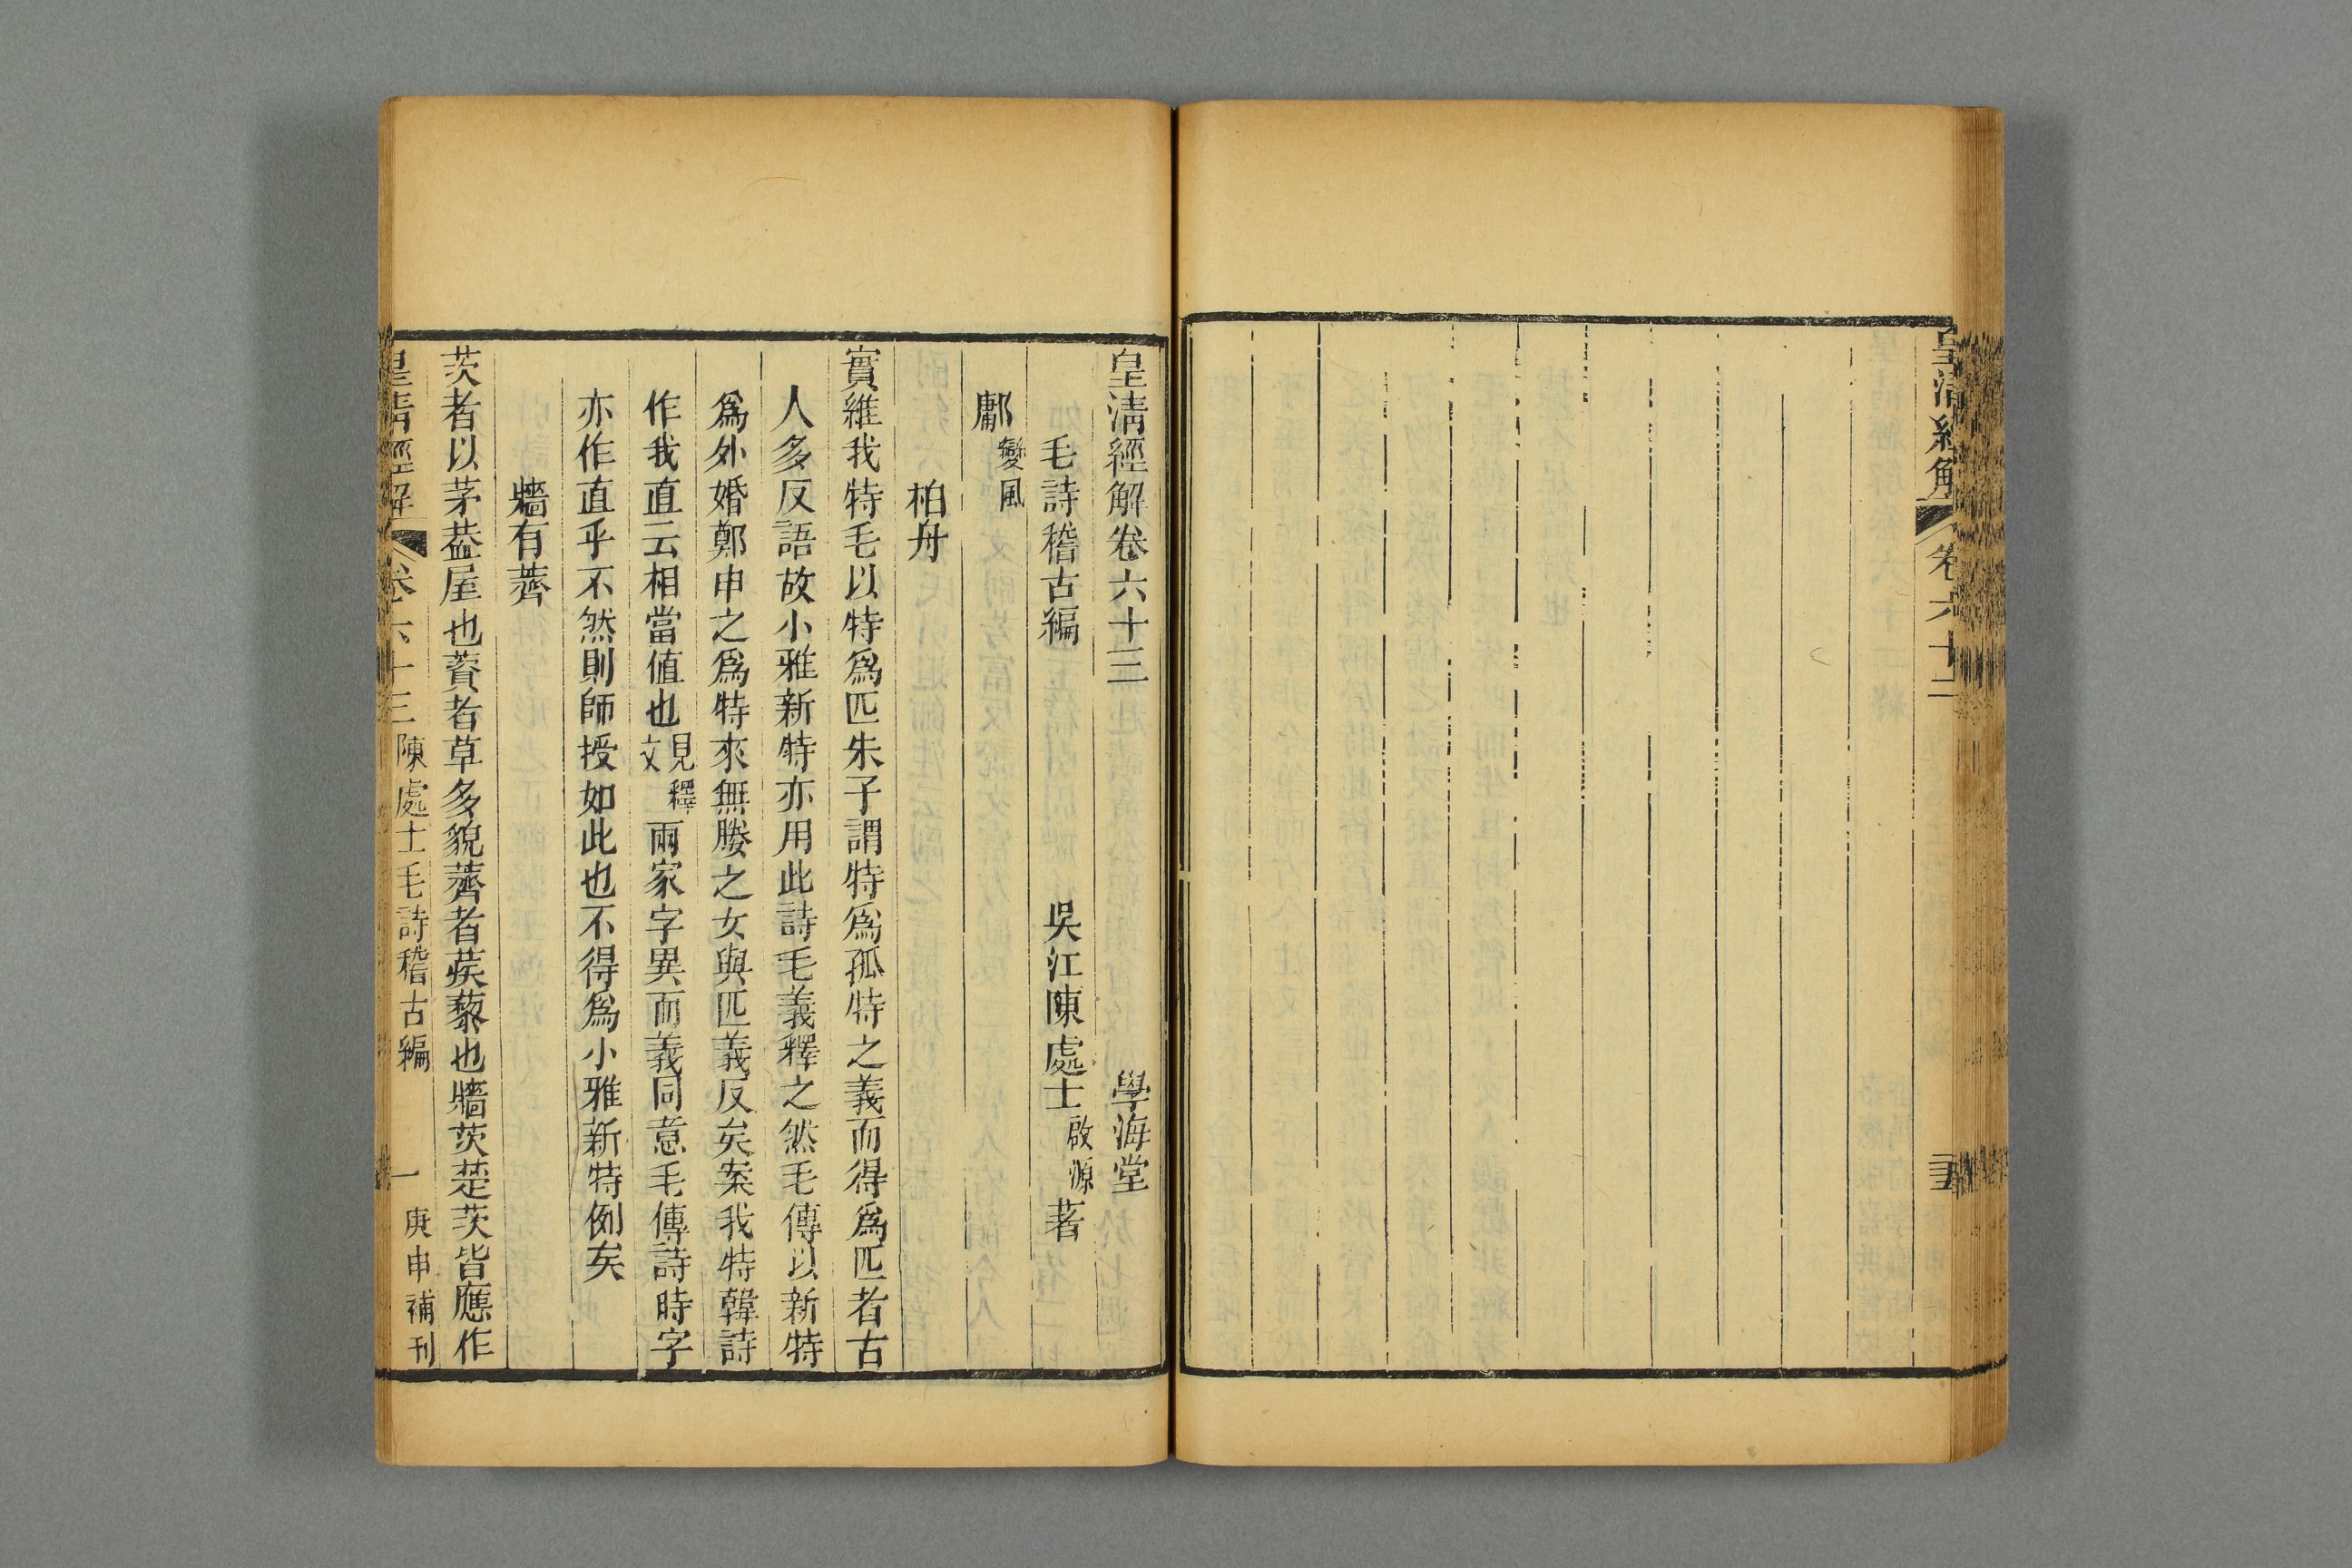 皇清經解
卷六十二
皇清經解卷六十三
學海堂
毛詩稽古編
吳江陳處士啟源著
鄘變風
柏舟
實維我特毛以特爲匹朱子謂特爲孤特之義而得爲匹者古
人多反語故小雅新特亦用此詩毛義釋之然毛傳以新特
爲外婚鄭申之爲特來無媵之女與匹義反矣案我特韓詩
作我直云相當値也見釋文兩家字異而義同意毛傳詩時字
亦作直乎不然則師授如此也不得爲小雅新特例矣
牆有薺
茨者以茅葢屋也薋者草多貌薺者蒺藜也牆茨楚茨皆應作
皇清經解
卷六十三
陳處士毛詩稽古編
一
庚申補刊